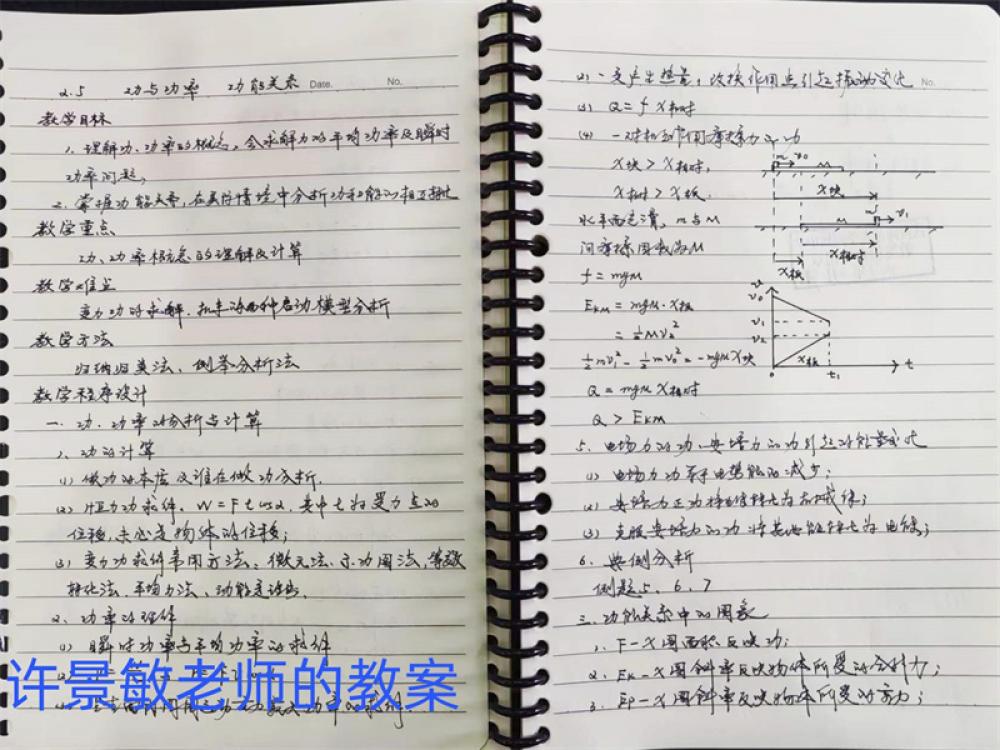 2.5 功与功率 功能关系 Date. No.
教学目标
1、理解功、功率的概念，会求解力的平均功率及瞬时
功率问题。
2、掌握功能关系，在具体情境中分析功和能的相互转化
教学重点
功、功率概念的理解及计算
教学难点
变力功的求解，机车的两种启动模型分析
教学方法
归纳归类法、例举分析法
教学程序设计
一、功、功率的分析与计算
1、功的计算
(1) 做功的本质及谁在做功分析.
(2) 恒力功求解，W=Flcosα，其中l为受力点的
位移，未必是物体的位移；
(3) 变力功求解常用方法：微元法、示功图法、等效
转化法、平均力法、动能定理法.
2、功率的理解
(1) 瞬时功率与平均功率的求解
许景敏老师的教案
(2) 一定产生热量，
作用点引起
变化 No.
(3) Q=f x相对
(4) 一对相互作用摩擦力的功
x块 > x相对,
x相对 > x板.
水平面光滑，m与M
间摩擦因数为μ
f=mgμ
EkM = mgμ·x板
= ½Mv₂²
½mv₁² - ½mv₀² = -mgμ x块
Q = mgμ x相对
Q > EkM
m v0 M
x块
M m v1
x相对
x板
v
v0
v1
v2
x板
0 t1 t
5、电场力的功、安培力的功引起的能量变化
(1) 电场力功等于电势能的减少；
(2) 安培力正功将电能转化为机械能；
(3) 克服安培力的功将其他能转化为电能；
6、典例分析
例题5、6、7
三、功能关系中的图象
1、F-x图面积反映功；
2、Ek-x图斜率反映物体所受的合外力；
3、Ep-x图斜率反映物体所受的
力；